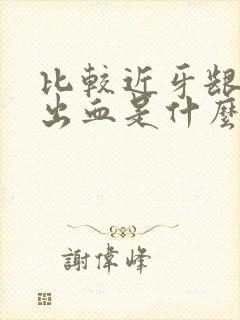 比較近牙齦
出血是什麼
謝偉峰